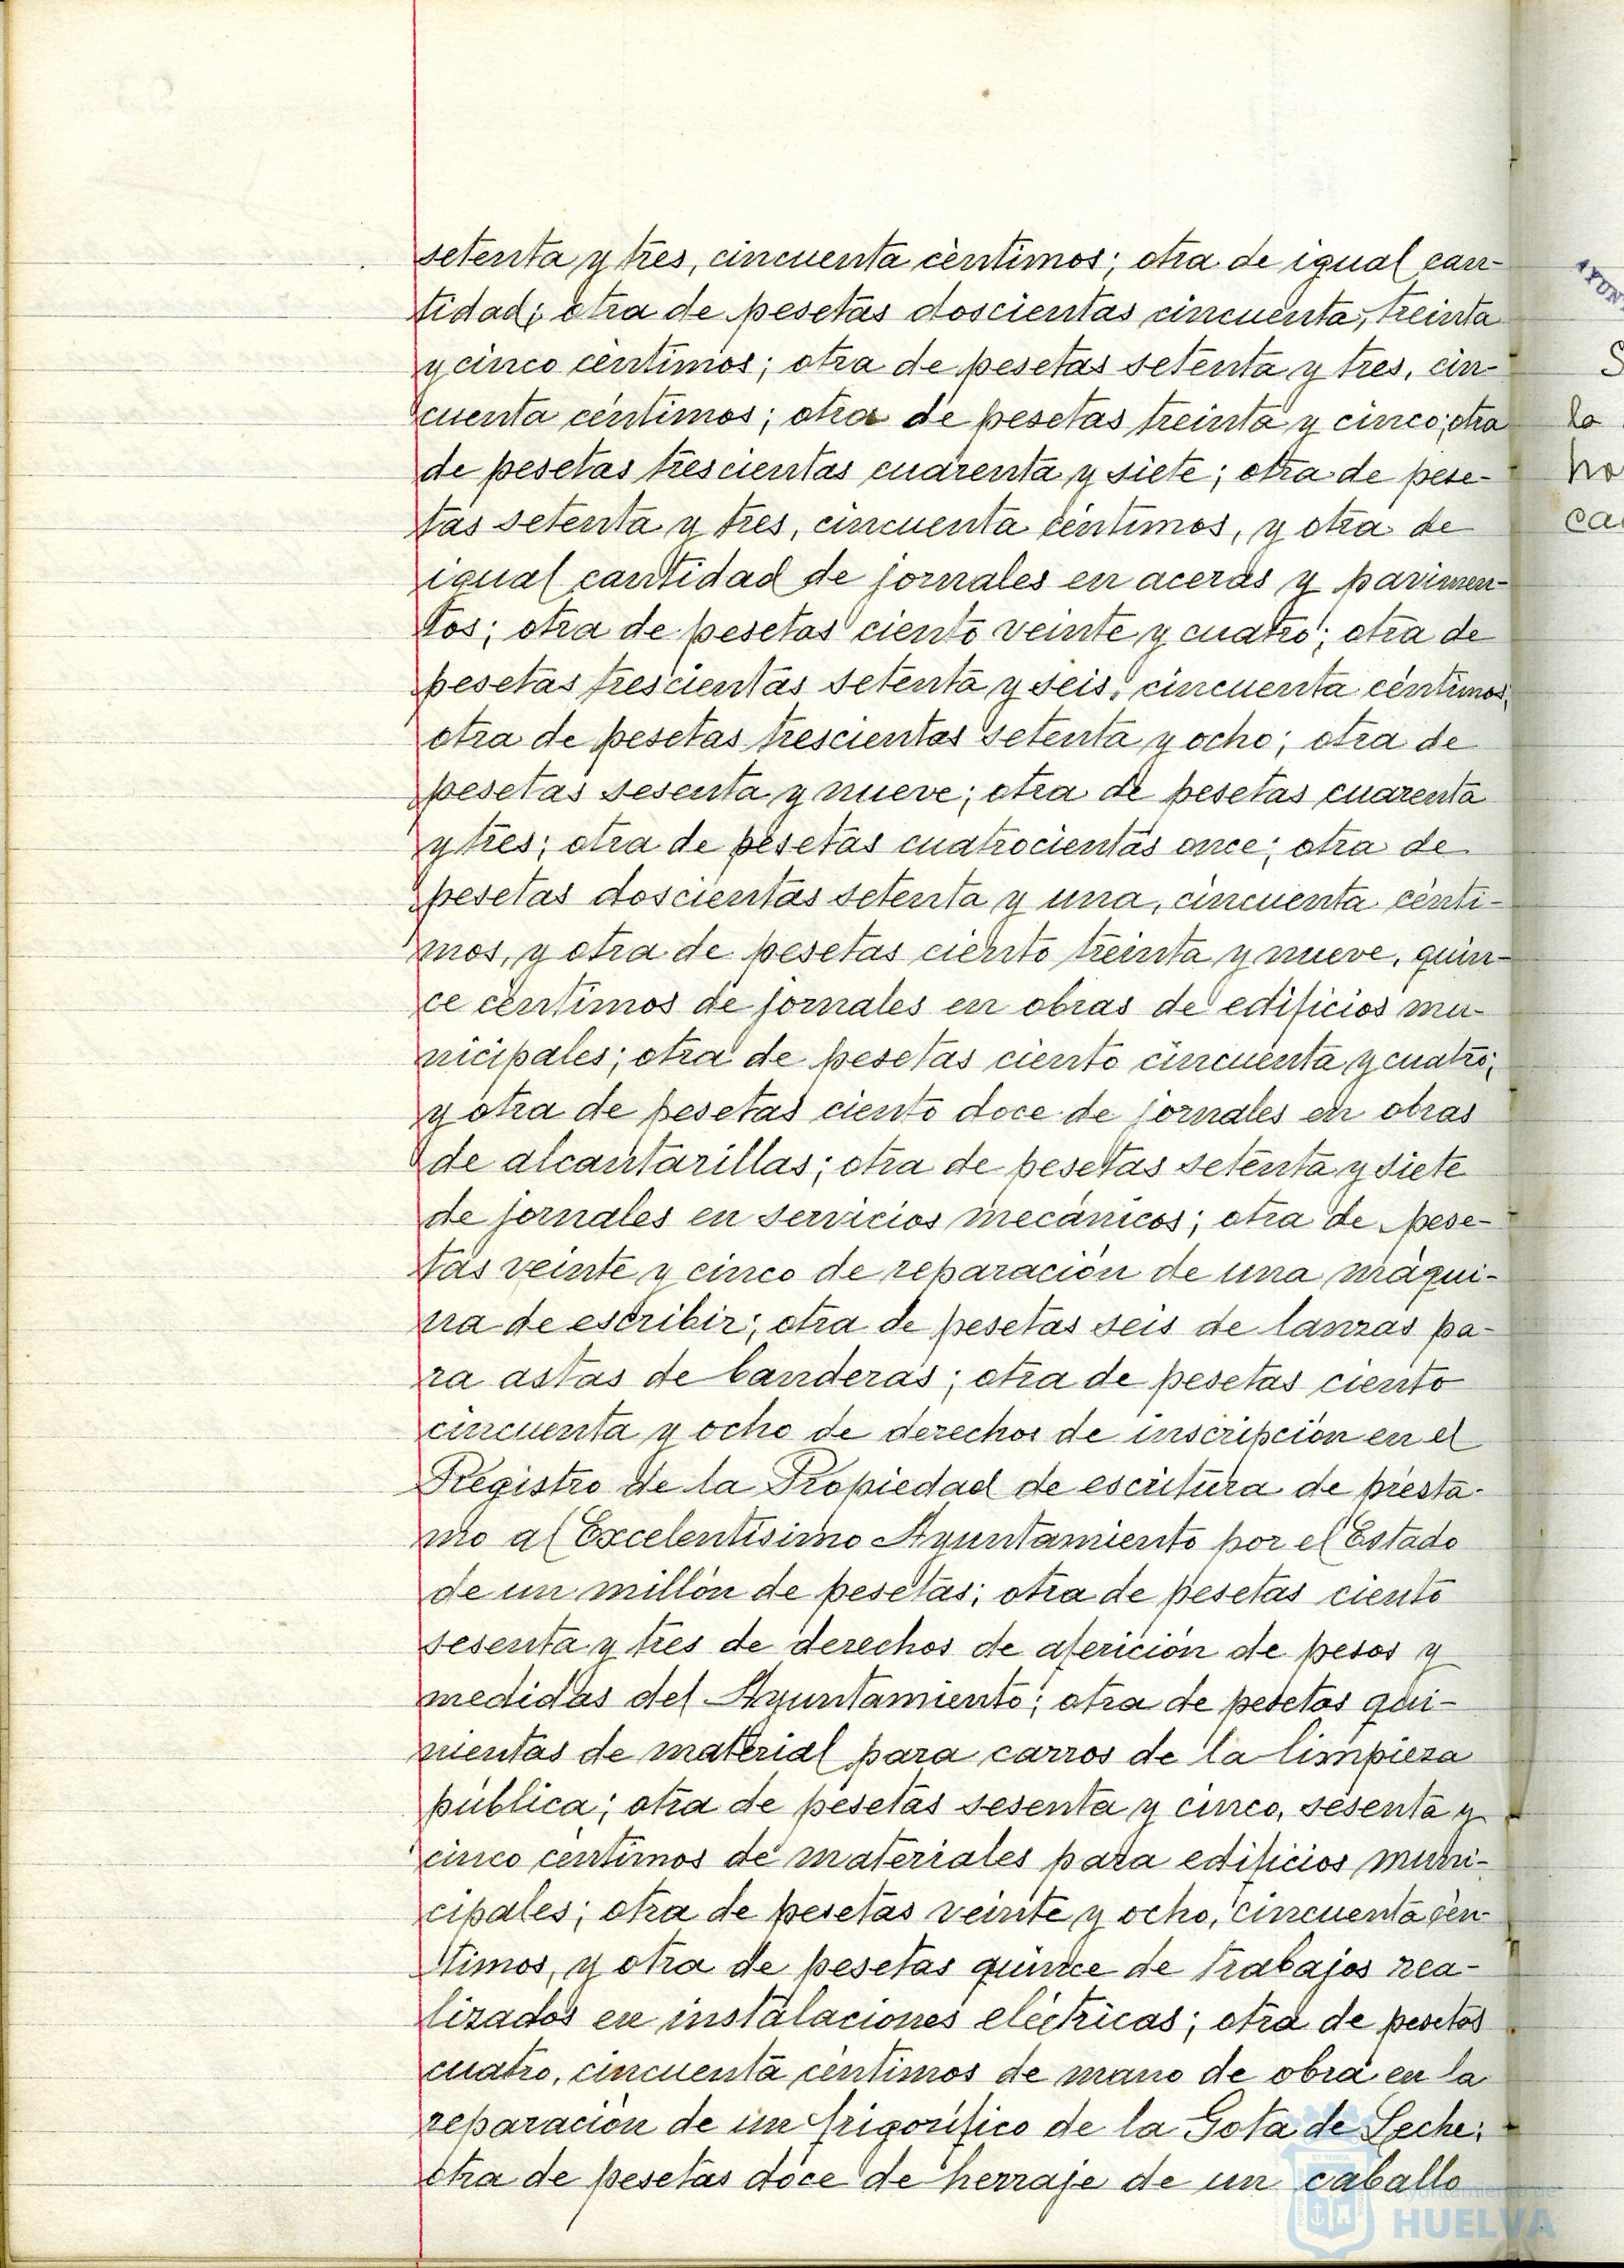 setenta y tres, cincuenta céntimos; otra de igual can-
tidad; otra de pesetas doscientas cincuenta, treinta
y cinco céntimos; otra de pesetas setenta y tres, cin-
cuenta céntimos; otra de pesetas treinta y cinco; otra
de pesetas trescientas cuarenta y siete; otra de pese-
tas setenta y tres, cincuenta céntimos, y otra de
igual cantidad de jornales en aceras y pavimen-
tos; otra de pesetas ciento veinte y cuatro; otra de
pesetas trescientas setenta y seis, cincuenta céntimos;
otra de pesetas trescientas setenta y ocho; otra de
pesetas sesenta y nueve; otra de pesetas cuarenta
y tres; otra de pesetas cuatrocientas once; otra de
pesetas doscientas setenta y una, cincuenta cénti-
mos, y otra de pesetas ciento treinta y nueve, quin-
ce céntimos de jornales en obras de edificios mu-
nicipales; otra de pesetas ciento cincuenta y cuatro;
y otra de pesetas ciento doce de jornales en obras
de alcantarillas; otra de pesetas setenta y siete
de jornales en servicios mecánicos; otra de pese-
tas veinte y cinco de reparación de una máqui-
na de escribir; otra de pesetas seis de lanzas pa-
ra astas de banderas; otra de pesetas ciento
cincuenta y ocho de derechos de inscripción en el
Registro de la Propiedad de escritura de présta-
mo al Excelentísimo Ayuntamiento por el Estado
de un millón de pesetas; otra de pesetas ciento
sesenta y tres de derechos de aferición de pesos y
medidas del Ayuntamiento; otra de pesetas qui-
nientas de material para carros de la limpieza
pública; otra de pesetas sesenta y cinco, sesenta y
cinco céntimos de materiales para edificios muni-
cipales; otra de pesetas veinte y ocho, cincuenta cén-
timos, y otra de pesetas quince de trabajos rea-
lizados en instalaciones eléctricas; otra de pesetas
cuatro, cincuenta céntimos de mano de obra en la
reparación de un frigorífico de la Gota de Leche;
otra de pesetas doce de herraje de un caballo
Ayuntamiento de
HUELVA